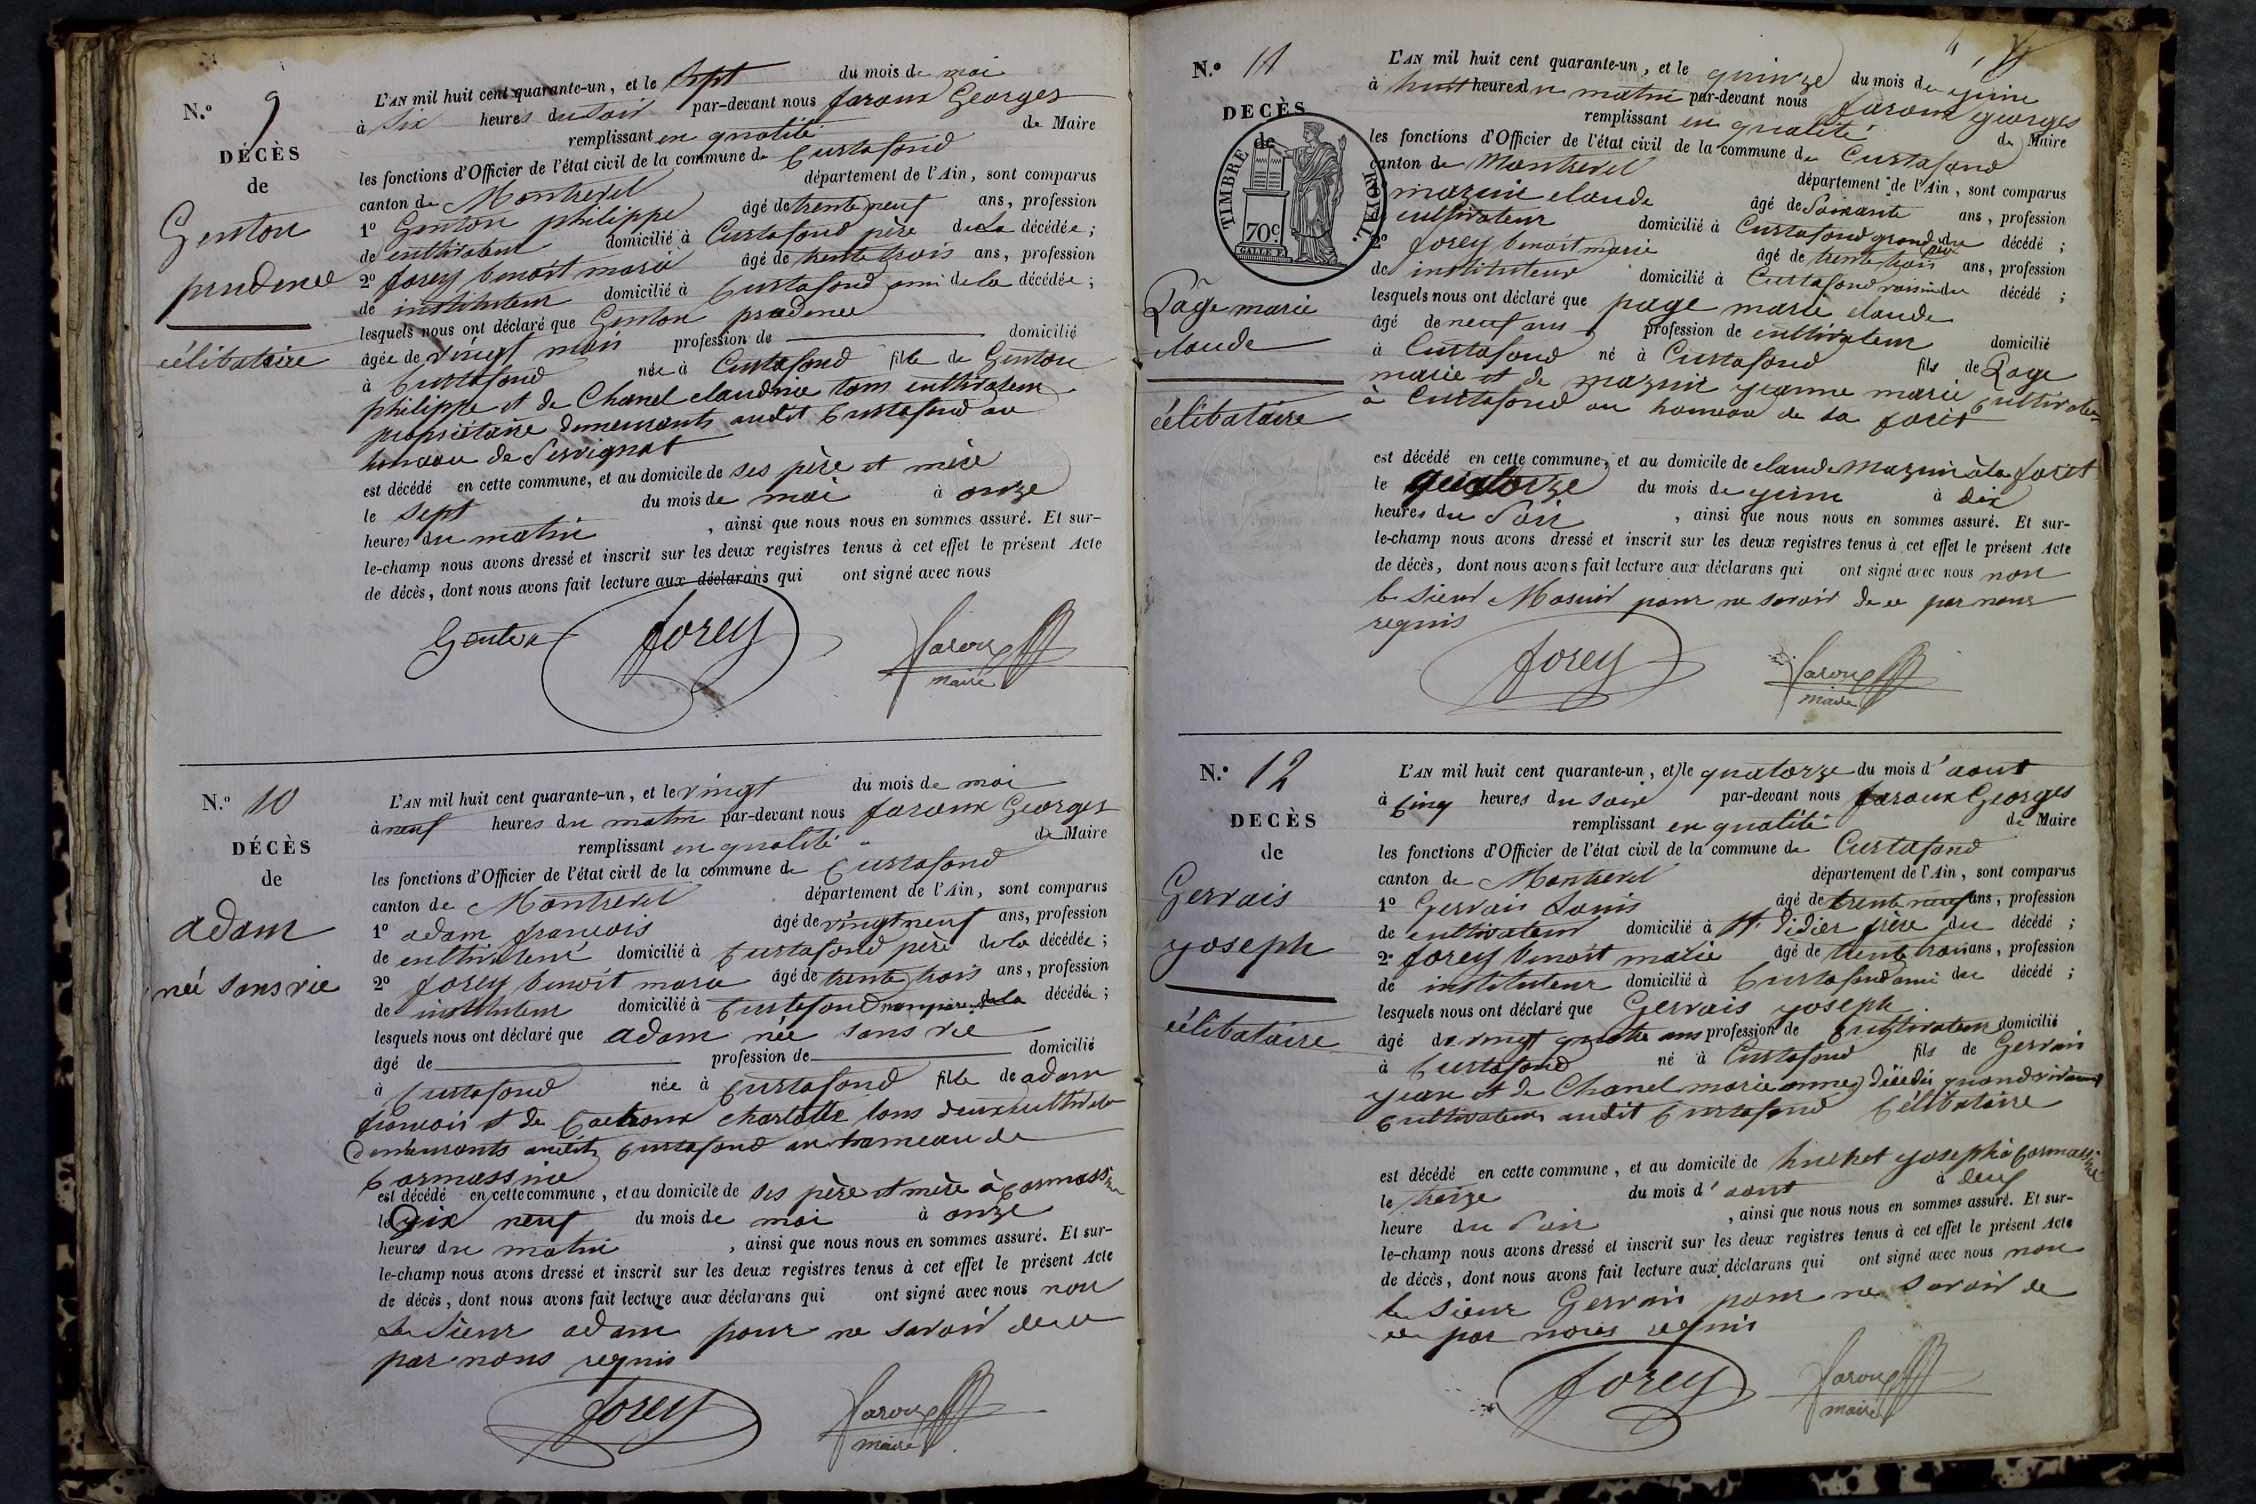 N.º 9
DÉCÈS
de
Genton
prudence
célibataire
L'AN mil huit cent quarante-un, et le sept du mois de mai
à six heures du soir par-devant nous faroux Georges
remplissant en qualité de Maire
les fonctions d'Officier de l'état civil de la commune de Curtafond
canton de Montrevel département de l'Ain, sont comparus
1º Genton philippe âgé de trente neuf ans, profession
de cultivateur domicilié à Curtafond père de la décédée;
2º forey benoit marie âgé de trente trois ans, profession
de instituteur domicilié à Curtafond ami de la décédée;
lesquels nous ont déclaré que Genton prudence
âgée de vingt mois profession de domicilié
à Curtafond née à Curtafond fille de Genton
philippe et de Chanel claudine tous cultivateur
propriétaire demeurants audit Curtafond au
hameau de Servignat
est décédé en cette commune, et au domicile de ses père et mère
le sept du mois de mai à onze
heures du matin, ainsi que nous nous en sommes assuré. Et sur-
le-champ nous avons dressé et inscrit sur les deux registres tenus à cet effet le présent Acte
de décès, dont nous avons fait lecture aux déclarans qui ont signé avec nous
Genton forey faroux
maire
N.º 10
DÉCÈS
de
adam
née sans vie
L'AN mil huit cent quarante-un, et le vingt du mois de mai
à neuf heures du matin par-devant nous faroux Georges
remplissant en qualité de Maire
les fonctions d'Officier de l'état civil de la commune de Curtafond
canton de Montrevel département de l'Ain, sont comparus
1º adam francois âgé de vingt neuf ans, profession
de cultivateur domicilié à Curtafond père de la décédée;
2º forey benoit marie âgé de trente trois ans, profession
de instituteur domicilié à Curtafond de la décédée;
lesquels nous ont déclaré que adam née sans vie
âgé de profession de domicilié
à Curtafond née à Curtafond fille de adam
francois et de charlotte tous deux cultivateur
demeurants audit Curtafond au hameau de
Cormassine
est décédé en cette commune, et au domicile de ses père et mère à Cormassine
le dix neuf du mois de mai à onze
heures du matin, ainsi que nous nous en sommes assuré. Et sur-
le-champ nous avons dressé et inscrit sur les deux registres tenus à cet effet le présent Acte
de décès, dont nous avons fait lecture aux déclarans qui ont signé avec nous non
le sieur adam pour ne savoir de ce
par nous requis
forey faroux
maire
N.º 11
DECÈS
de
TIMBRE ROYAL.
70c.
Page marie
claude
célibataire
L'AN mil huit cent quarante-un, et le quinze du mois de juin
à huit heures du matin par-devant nous faroux Georges
remplissant en qualité de Maire
les fonctions d'Officier de l'état civil de la commune de Curtafond
canton de Montrevel département de l'Ain, sont comparus
mazuir claude âgé de soixante ans, profession
cultivateur domicilié à Curtafond grand père du décédé;
2º forey benoit marie âgé de trente trois ans, profession
de instituteur domicilié à Curtafond voisin du décédé;
lesquels nous ont déclaré que page marie claude
âgé de neuf ans profession de cultivateur domicilié
à Curtafond né à Curtafond fils de Page
marie et de mazuir jeanne marie Cultivateur
à Curtafond au hameau de la forêt
est décédé en cette commune, et au domicile de claude Mazuir à la forêt
le quatorze du mois de juin à dix
heures du soir, ainsi que nous nous en sommes assuré. Et sur-
le-champ nous avons dressé et inscrit sur les deux registres tenus à cet effet le présent Acte
de décès, dont nous avons fait lecture aux déclarans qui ont signé avec nous non
le sieur Masuir pour ne savoir de ce par nous
requis
forey faroux
maire
N.º 12
DECÈS
de
Gervais
joseph
célibataire
L'AN mil huit cent quarante-un, et le quatorze du mois d'aout
à Cinq heures du soir par-devant nous faroux Georges
remplissant en qualité de Maire
les fonctions d'Officier de l'état civil de la commune de Curtafond
canton de Montrevel département de l'Ain, sont comparus
1º Gervais Louis âgé de trente neuf ans, profession
de cultivateur domicilié à St. Didier frère du décédé;
2º forey benoit marie âgé de trente trois ans, profession
de instituteur domicilié à Curtafond ami du décédé;
lesquels nous ont déclaré que Gervais joseph
âgé de vingt quatre ans profession de Cultivateur domicilié
à Curtafond né à Curtafond fils de Gervais
jean et de Chanel marie anne décédés quand vivants
Cultivateurs audit Curtafond Célibataire
est décédé en cette commune, et au domicile de huchet joseph à Cormassine
le treize du mois d'aout à deux
heure du soir, ainsi que nous nous en sommes assuré. Et sur-
le-champ nous avons dressé et inscrit sur les deux registres tenus à cet effet le présent Acte
de décès, dont nous avons fait lecture aux déclarans qui ont signé avec nous non
le sieur Gervais pour ne savoir de
ce par nous requis
forey faroux
maire